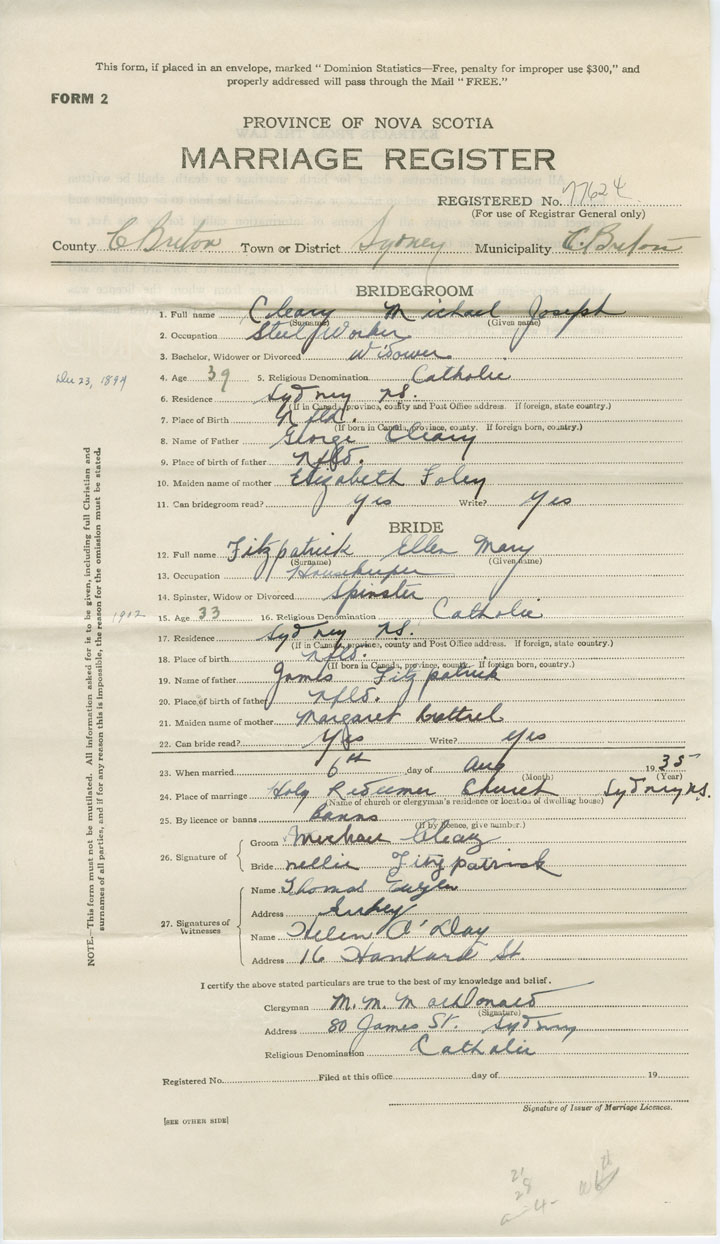 This form, if placed in an envelope, marked " Dominion Statistics—Free, penalty for improper use $300," and
properly addressed will pass through the Mail " FREE."
FORM 2
PROVINCE OF NOVA SCOTIA
MARRIAGE REGISTER
REGISTERED No. 77624
(For use of Registrar General only)
County C Breton Town or District Sydney Municipality C. Breton
BRIDEGROOM
1. Full name Cleary Michael Joseph
(Surname) (Given name)
2. Occupation Steel Worker
3. Bachelor, Widower or Divorced Widower
Dec 23, 1894 4. Age 39 5. Religious Denomination Catholic
6. Residence Sydney N.S.
(If in Canada, province, county and Post Office address. If foreign, state country.)
7. Place of Birth Nfld.
(If born in Canada, province, county. If foreign born, country.)
8. Name of Father George Cleary
9. Place of birth of father Nfld.
10. Maiden name of mother Elizabeth Foley
11. Can bridegroom read? Yes Write? Yes
BRIDE
12. Full name Fitzpatrick Ellen Mary
(Surname) (Given name)
13. Occupation Housekeeper
14. Spinster, Widow or Divorced Spinster
1902 15. Age 33 16. Religious Denomination Catholic
17. Residence Sydney N.S.
(If in Canada, province, county and Post Office address. If foreign, state country.)
18. Place of birth Nfld.
(If born in Canada, province, county. If foreign born, country.)
19. Name of father James Fitzpatrick
20. Place of birth of father Nfld.
21. Maiden name of mother Margaret Cottrel
22. Can bride read? Yes Write? Yes
23. When married 6th day of Aug 1935
(Month) (Year)
24. Place of marriage Holy Redeemer Church Sydney N.S.
(Name of church or clergyman's residence or location of dwelling house)
25. By licence or banns Banns
(If by licence, give number.)
26. Signature of Groom Michael Cleary
Bride Nellie Fitzpatrick
27. Signatures of Witnesses Name Thomas
Address
Name Helen O'Day
Address 16 Hankard St.
I certify the above stated particulars are true to the best of my knowledge and belief.
Clergyman M. M. MacDonald
(Signature)
Address 80 James St. Sydney
Religious Denomination Catholic
Registered No. Filed at this office day of 19
Signature of Issuer of Marriage Licences.
[SEE OTHER SIDE]
NOTE.—This form must not be mutilated. All information asked for is to be given, including full Christian and
surnames of all parties, and if for any reason this is impossible, the reason for the omission must be stated.